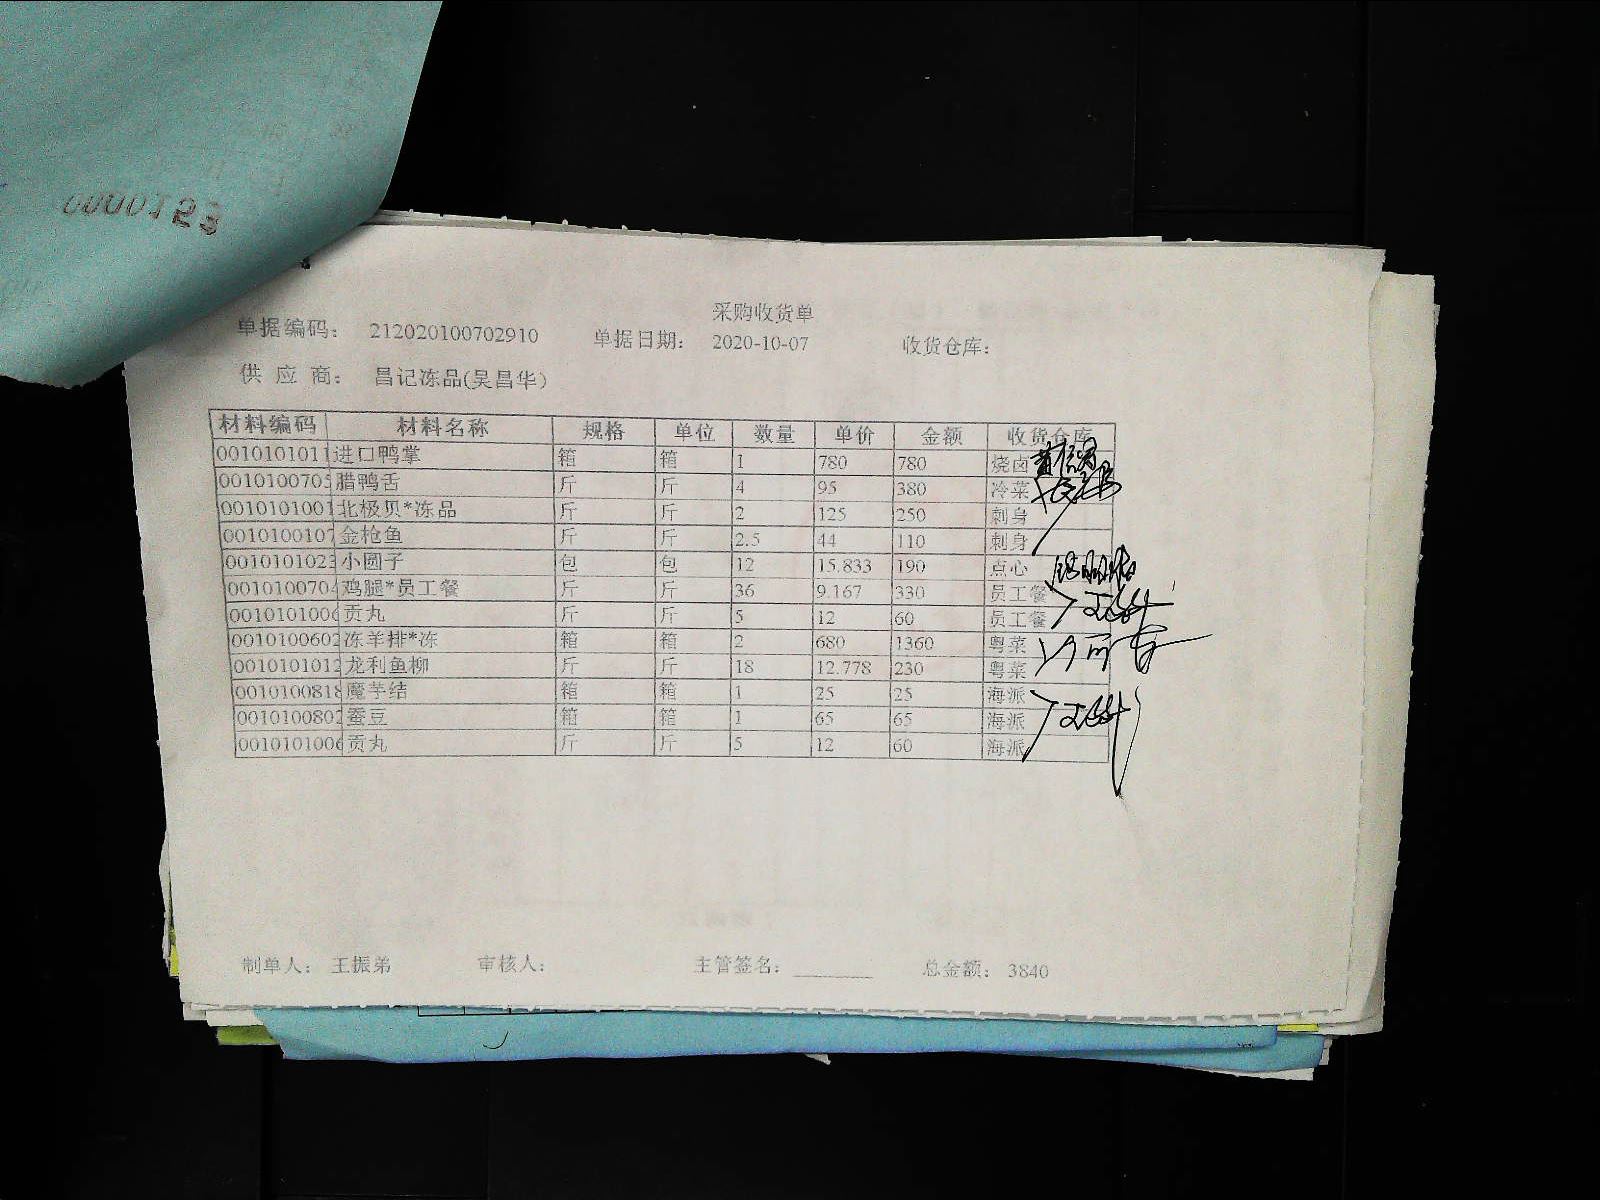 0000123
采购收货单
单据编码： 212020100702910 单据日期： 2020-10-07 收货仓库：
供 应 商： 昌记冻品(吴昌华)
材料编码 材料名称 规格 单位 数量 单价 金额 收货仓库
0010101011 进口鸭掌 箱 箱 1 780 780 烧卤
001010070 腊鸭舌 斤 斤 4 95 380 冷菜
0010101001 北极贝*冻品 斤 斤 2 125 250 刺身
0010100107 金枪鱼 斤 斤 2.5 44 110 刺身
001010102 小圆子 包 包 12 15.833 190 点心
001010070 鸡腿*员工餐 斤 斤 36 9.167 330 员工餐
001010100 贡丸 斤 斤 5 12 60 员工餐
0010100602 冻羊排*冻 箱 箱 2 680 1360 粤菜
0010101012 龙利鱼柳 斤 斤 18 12.778 230 粤菜
001010081 魔芋结 箱 箱 1 25 25 海派
001010080 蚕豆 箱 箱 1 65 65 海派
001010100 贡丸 斤 斤 5 12 60 海派
制单人： 王振弟 审核人： 主管签名： 总金额： 3840